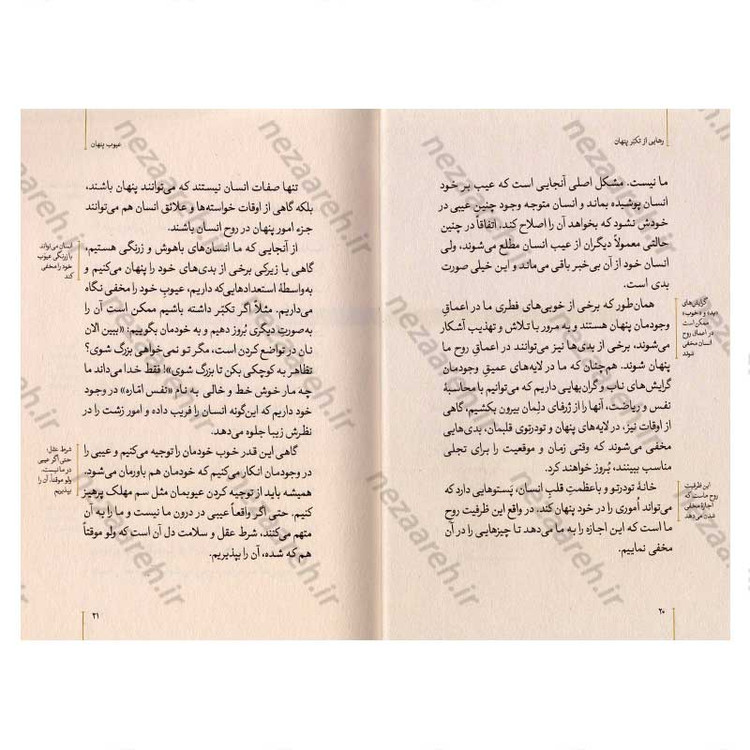 رهایی از تکبّر پنهان
ما نیست. مشکل اصلی آنجایی است که عیب بر خود
انسان پوشیده بماند و انسان متوجه وجود چنین عیبی در
خودش نشود که بخواهد آن را اصلاح کند. اتفاقاً در چنین
حالتی معمولاً دیگران از عیب انسان مطلع می‌شوند، ولی
انسان خود از آن بی‌خبر باقی می‌ماند و این خیلی صورت
بدی است.
همان‌طور که برخی از خوبی‌های فطری ما در اعماقِ
وجودمان پنهان هستند و به مرور با تلاش و تهذیب آشکار
می‌شوند، برخی از بدی‌ها نیز می‌توانند در اعماقِ روح ما
پنهان شوند. هم‌چنان که ما در لایه‌های عمیقِ وجودمان
گرایش‌های ناب و گران‌بهایی داریم که می‌توانیم با محاسبهٔ
نفس و ریاضت، آنها را از ژرفای دلِمان بیرون بکشیم، گاهی
از اوقات نیز، در لایه‌های پنهان و تودرتوی قلبمان، بدی‌هایی
مخفی می‌شوند که وقتی زمان و موقعیت را برای تجلی
مناسب ببینند، بُروز خواهند کرد.
خانهٔ تودرتو و باعظمتِ قلبِ انسان، پَستوهایی دارد که
می‌تواند اُموری را در خود پنهان کند. در واقع این ظرفیت روح
ما است که این اجازه را به ما می‌دهد تا چیزهایی را در آن
مخفی نماییم.
گرایش‌های
«بد» و «خوب»
ممکن است
در اعماق روح
انسان مخفی
شوند
این ظرفیت
روح ماست که
اجازهٔ مخفی
شدن می‌دهد
۲۰
عیوب پنهان
تنها صفات انسان نیستند که می‌توانند پنهان باشند،
بلکه گاهی از اوقات خواسته‌ها و علائق انسان هم می‌توانند
جزء امور پنهان در روح انسان باشند.
از آنجایی که ما انسان‌های باهوش و زرنگی هستیم،
گاهی با زیرکی برخی از بدی‌های خود را پنهان می‌کنیم و
به‌واسطهٔ استعدادهایی‌که داریم، عیوبِ خود را مخفی نگاه
می‌داریم. مثلاً اگر تکبّر داشته باشیم ممکن است آن را
به‌صورتِ دیگری بُروز دهیم و به خودمان بگوییم: «ببین الان
نان در تواضع کردن است، مگر تو نمی‌خواهی بزرگ شوی؟
تظاهر به کوچکی بکن تا بزرگ شوی»! فقط خدا می‌داند ما
چه مار خوش خط و خالی به نام «نفس امّاره» در وجود
خود داریم که این‌گونه انسان را فریب داده و امور زشت را در
نظرش زیبا جلوه می‌دهد.
گاهی این قدر خوب خودمان را توجیه می‌کنیم و عیبی را
در وجودمان انکار می‌کنیم که خودمان هم باورمان می‌شود.
همیشه باید از توجیه کردن عیوبمان مثل سم مهلک پرهیز
کنیم. حتی اگر واقعاً عیبی در درون ما نیست و ما را به آن
متهم می‌کنند، شرط عقل و سلامت دل آن است که ولو موقتاً
هم که شده، آن را بپذیریم.
انسان می‌تواند
با زرنگی عیوب
خود را مخفی
کند
شرط عقل:
حتی اگر عیبی
در ما نیست،
ولو موقتاً، آن را
بپذیریم
۲۱
nezaareh.ir